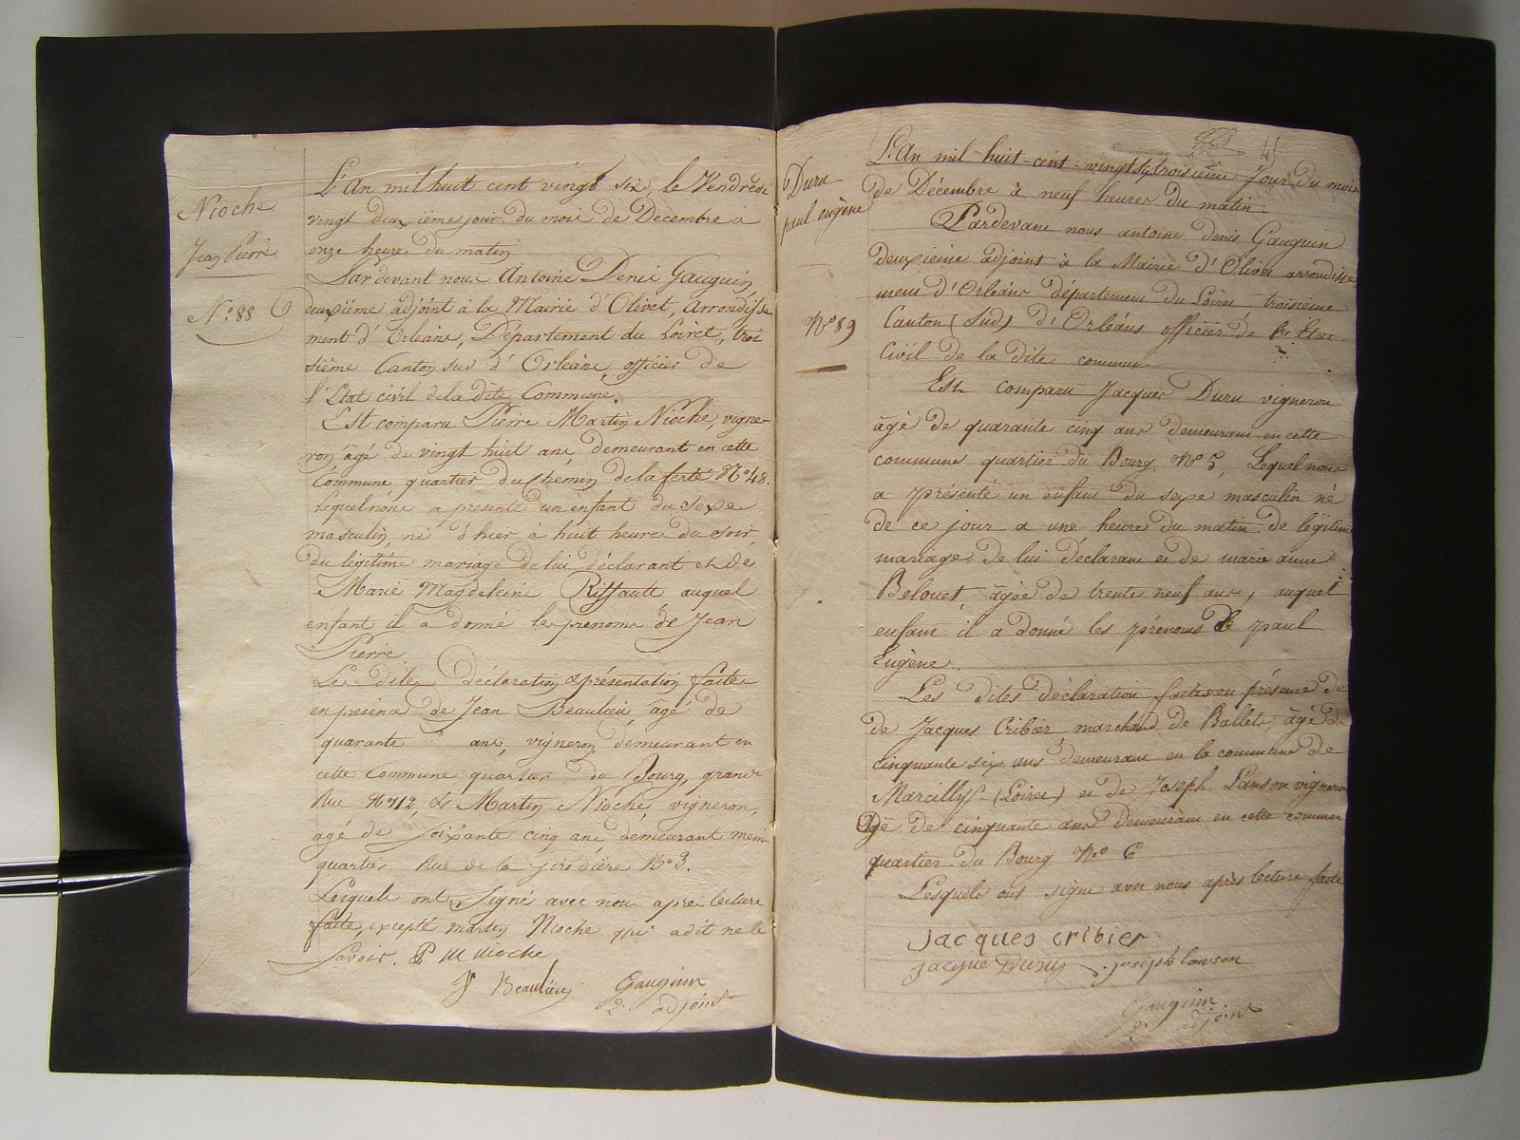 Nioche
Jean Pierre
N.º 88
L'An mil huit cent vingt six, le Vendredi
vingt deuxième jour du mois de Décembre à
onze heure du matin
Pardevant nous Antoine Denis Gauguin,
deuxième adjoint à la Mairie d'Olivet, Arrondisse
ment d'Orléans, Département du Loiret, troi
sième Canton sud d'Orléans, officier de
l'Etat civil de la dite Commune.
Est comparu Pierre Martin Nioche, vigne-
ron agé de vingt huit ans, demeurant en cette
Commune quartier du chemin de la ferté Nº 48.
Lequel nous a présenté un enfant du sexe
masculin, né d'hier, à huit heures du soir,
du légitime mariage de lui déclarant et de
Marie Magdeleine Riffault auquel
enfant il a donné les prénoms de Jean
Pierre
Les dites déclaration & présentation faites
en présence de Jean Beaulieu, agé de
quarante ans, vigneron demeurant en
cette Commune quartier du Bourg, grande
Rue Nº 112, & Martin Nioche, vigneron,
agé de soixante cinq ans demeurant même
quartier Rue de la Nº 3.
Lesquels ont signés avec nous après lecture
faite, excepté martin Nioche qui a dit ne le
savoir. P M nioche
J Beaulieu Gauguin
2. adjoint
Duru
paul eugène
Nº 89
L'An mil-huit-cent-vingt six troisième Jour du mois
de Décembre à neuf heures du matin
Pardevant nous antoine denis Gauguin
deuxième adjoint à la Mairie d'Olivet arrondisse
ment d'Orléans département du Loiret troisième
Canton (Sud) d'Orléans officier de l'Etat-
Civil de la dite commune
Est comparu Jacques Duru vigneron
âgé de quarante cinq ans demeurant en cette
commune quartier du Bourg Nº 5, Lequel nous
a présenté un enfant du sexe masculin né
de ce jour a une heure du matin de légitime
mariage de lui déclarant et de marie anne
Belouet, âgée de trente neuf ans, auquel
enfant il a donné les prénoms de paul
Eugène.
Les dites déclaration faites en présence de
de Jacques Cribier marchand de Ballets, âgé de
cinquante six ans demeurant en la commune de
Marcilly (Loiret) et de Joseph Lanson vigneron
âgé de cinquante ans demeurant en cette commune
quartier du Bourg Nº 6
Lesquels ont signé avec nous après lecture faite
jacques cribier
jacque Duru joseph lanson
Gauguin
2. adjoint